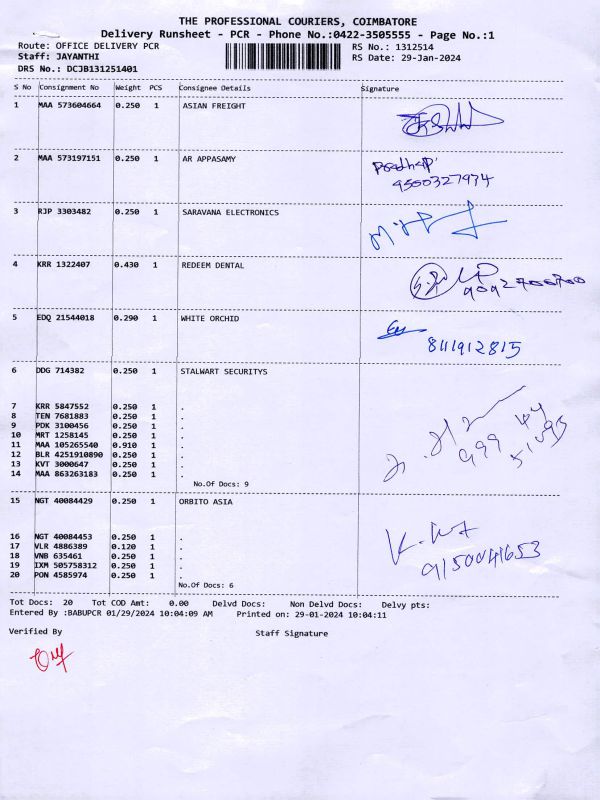 THE PROFESSIONAL COURIERS, COIMBATORE
Delivery Runsheet - PCR - Phone No.:0422-3505555 - Page No.:1
Route: OFFICE DELIVERY PCR RS No.: 1312514
Staff: JAYANTHI RS Date: 29-Jan-2024
DRS No.: DCJB131251401
S No Consignment No Weight PCS Consignee Details Signature
1 MAA 573604664 0.250 1 ASIAN FREIGHT
2 MAA 573197151 0.250 1 AR APPASAMY
9500327974
3 RJP 3303482 0.250 1 SARAVANA ELECTRONICS
4 KRR 1322407 0.430 1 REDEEM DENTAL
5 EDQ 21544018 0.290 1 WHITE ORCHID
8111912815
6 DDG 714382 0.250 1 STALWART SECURITYS
7 KRR 5847552 0.250 1 .
8 TEN 7681883 0.250 1 .
9 PDK 3100456 0.250 1 .
10 MRT 1258145 0.250 1 .
11 MAA 105265540 0.910 1 .
12 BLR 4251910890 0.250 1 .
13 KVT 3000647 0.250 1 .
14 MAA 863263183 0.250 1 .
No.Of Docs: 9
15 NGT 40084429 0.250 1 ORBITO ASIA
16 NGT 40084453 0.250 1 .
17 VLR 4886389 0.120 1 .
18 VNB 635461 0.250 1 .
19 IXM 505758312 0.250 1 .
20 PON 4585974 0.250 1 .
9150041653
No.Of Docs: 6
Tot Docs: 20 Tot COD Amt: 0.00 Delvd Docs: Non Delvd Docs: Delvy pts:
Entered By :BABUPCR 01/29/2024 10:04:09 AM Printed on: 29-01-2024 10:04:11
Verified By Staff Signature